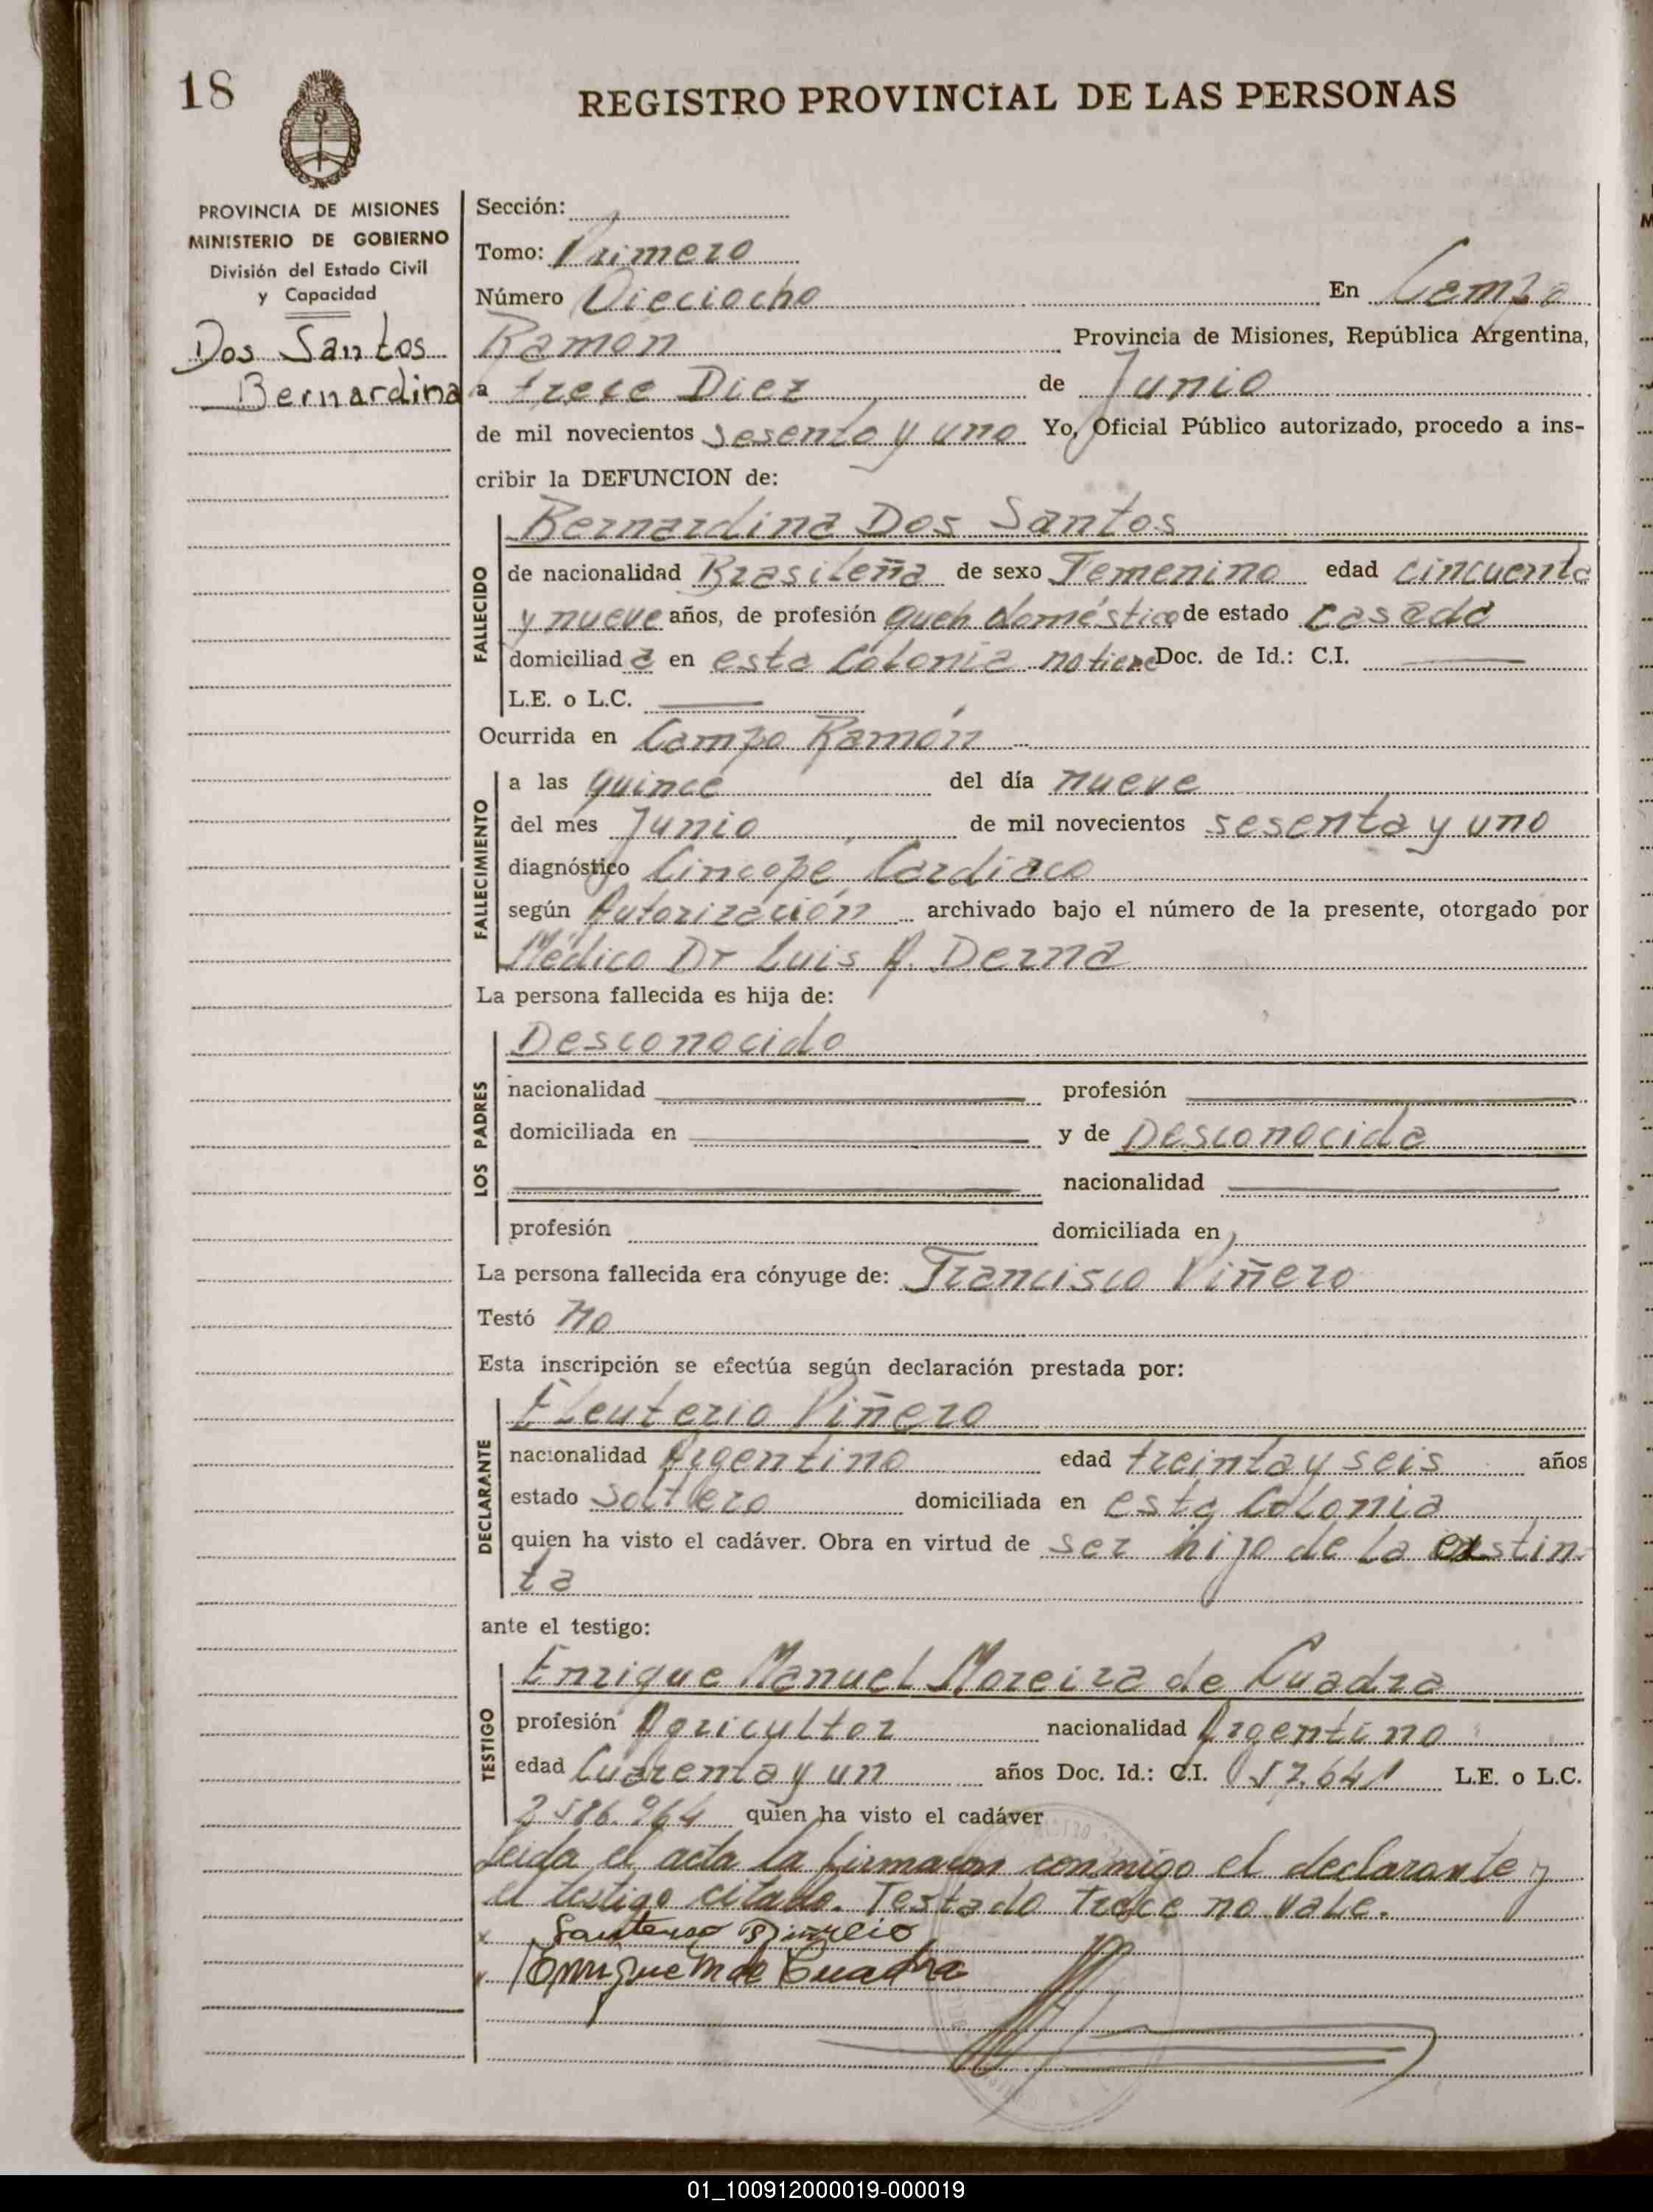 18
REGISTRO PROVINCIAL DE LAS PERSONAS
PROVINCIA DE MISIONES
MINISTERIO DE GOBIERNO
División del Estado Civil
y Capacidad
Dos Santos
Bernardina
Sección:
Tomo: Primero
Número Dieciocho En Campo
Ramon Provincia de Misiones, República Argentina,
a trece Diez de Junio
de mil novecientos sesenta y uno Yo, Oficial Público autorizado, procedo a ins-
cribir la DEFUNCION de:
FALLECIDO
Bernardina Dos Santos
de nacionalidad Brasileña de sexo Femenino edad cincuenta
y nueve años, de profesión queh doméstico de estado casada
domiciliad a en esta Colonia no tiene Doc. de Id.: C.I.
L.E. o L.C.
Ocurrida en Campo Ramón
FALLECIMIENTO
a las quince del día nueve
del mes Junio de mil novecientos sesenta y uno
diagnóstico Cincope Cardiaco
según Autorización archivado bajo el número de la presente, otorgado por
Médico Dr Luis A. Derna
La persona fallecida es hija de:
LOS PADRES
Desconocido
nacionalidad profesión
domiciliada en y de Desconocida
nacionalidad
profesión domiciliada en
La persona fallecida era cónyuge de: Francisco Piñero
Testó No
Esta inscripción se efectúa según declaración prestada por:
DECLARANTE
Eleuterio Piñero
nacionalidad Argentino edad treinta y seis años
estado Soltero domiciliada en esta Colonia
quien ha visto el cadáver. Obra en virtud de ser hijo de la exstin-
ta
ante el testigo:
TESTIGO
Enrique Manuel Moreira de Cuadra
profesión Agricultor nacionalidad Argentino
edad Cuarenta y un años Doc. Id.: C.I. 057.641 L.E. o L.C.
2586.964 quien ha visto el cadáver
Leida el acta la firmaron conmigo el declarante y
el testigo citado. Testado trece no vale.
Enrique M de Cuadra
01_100912000019-000019